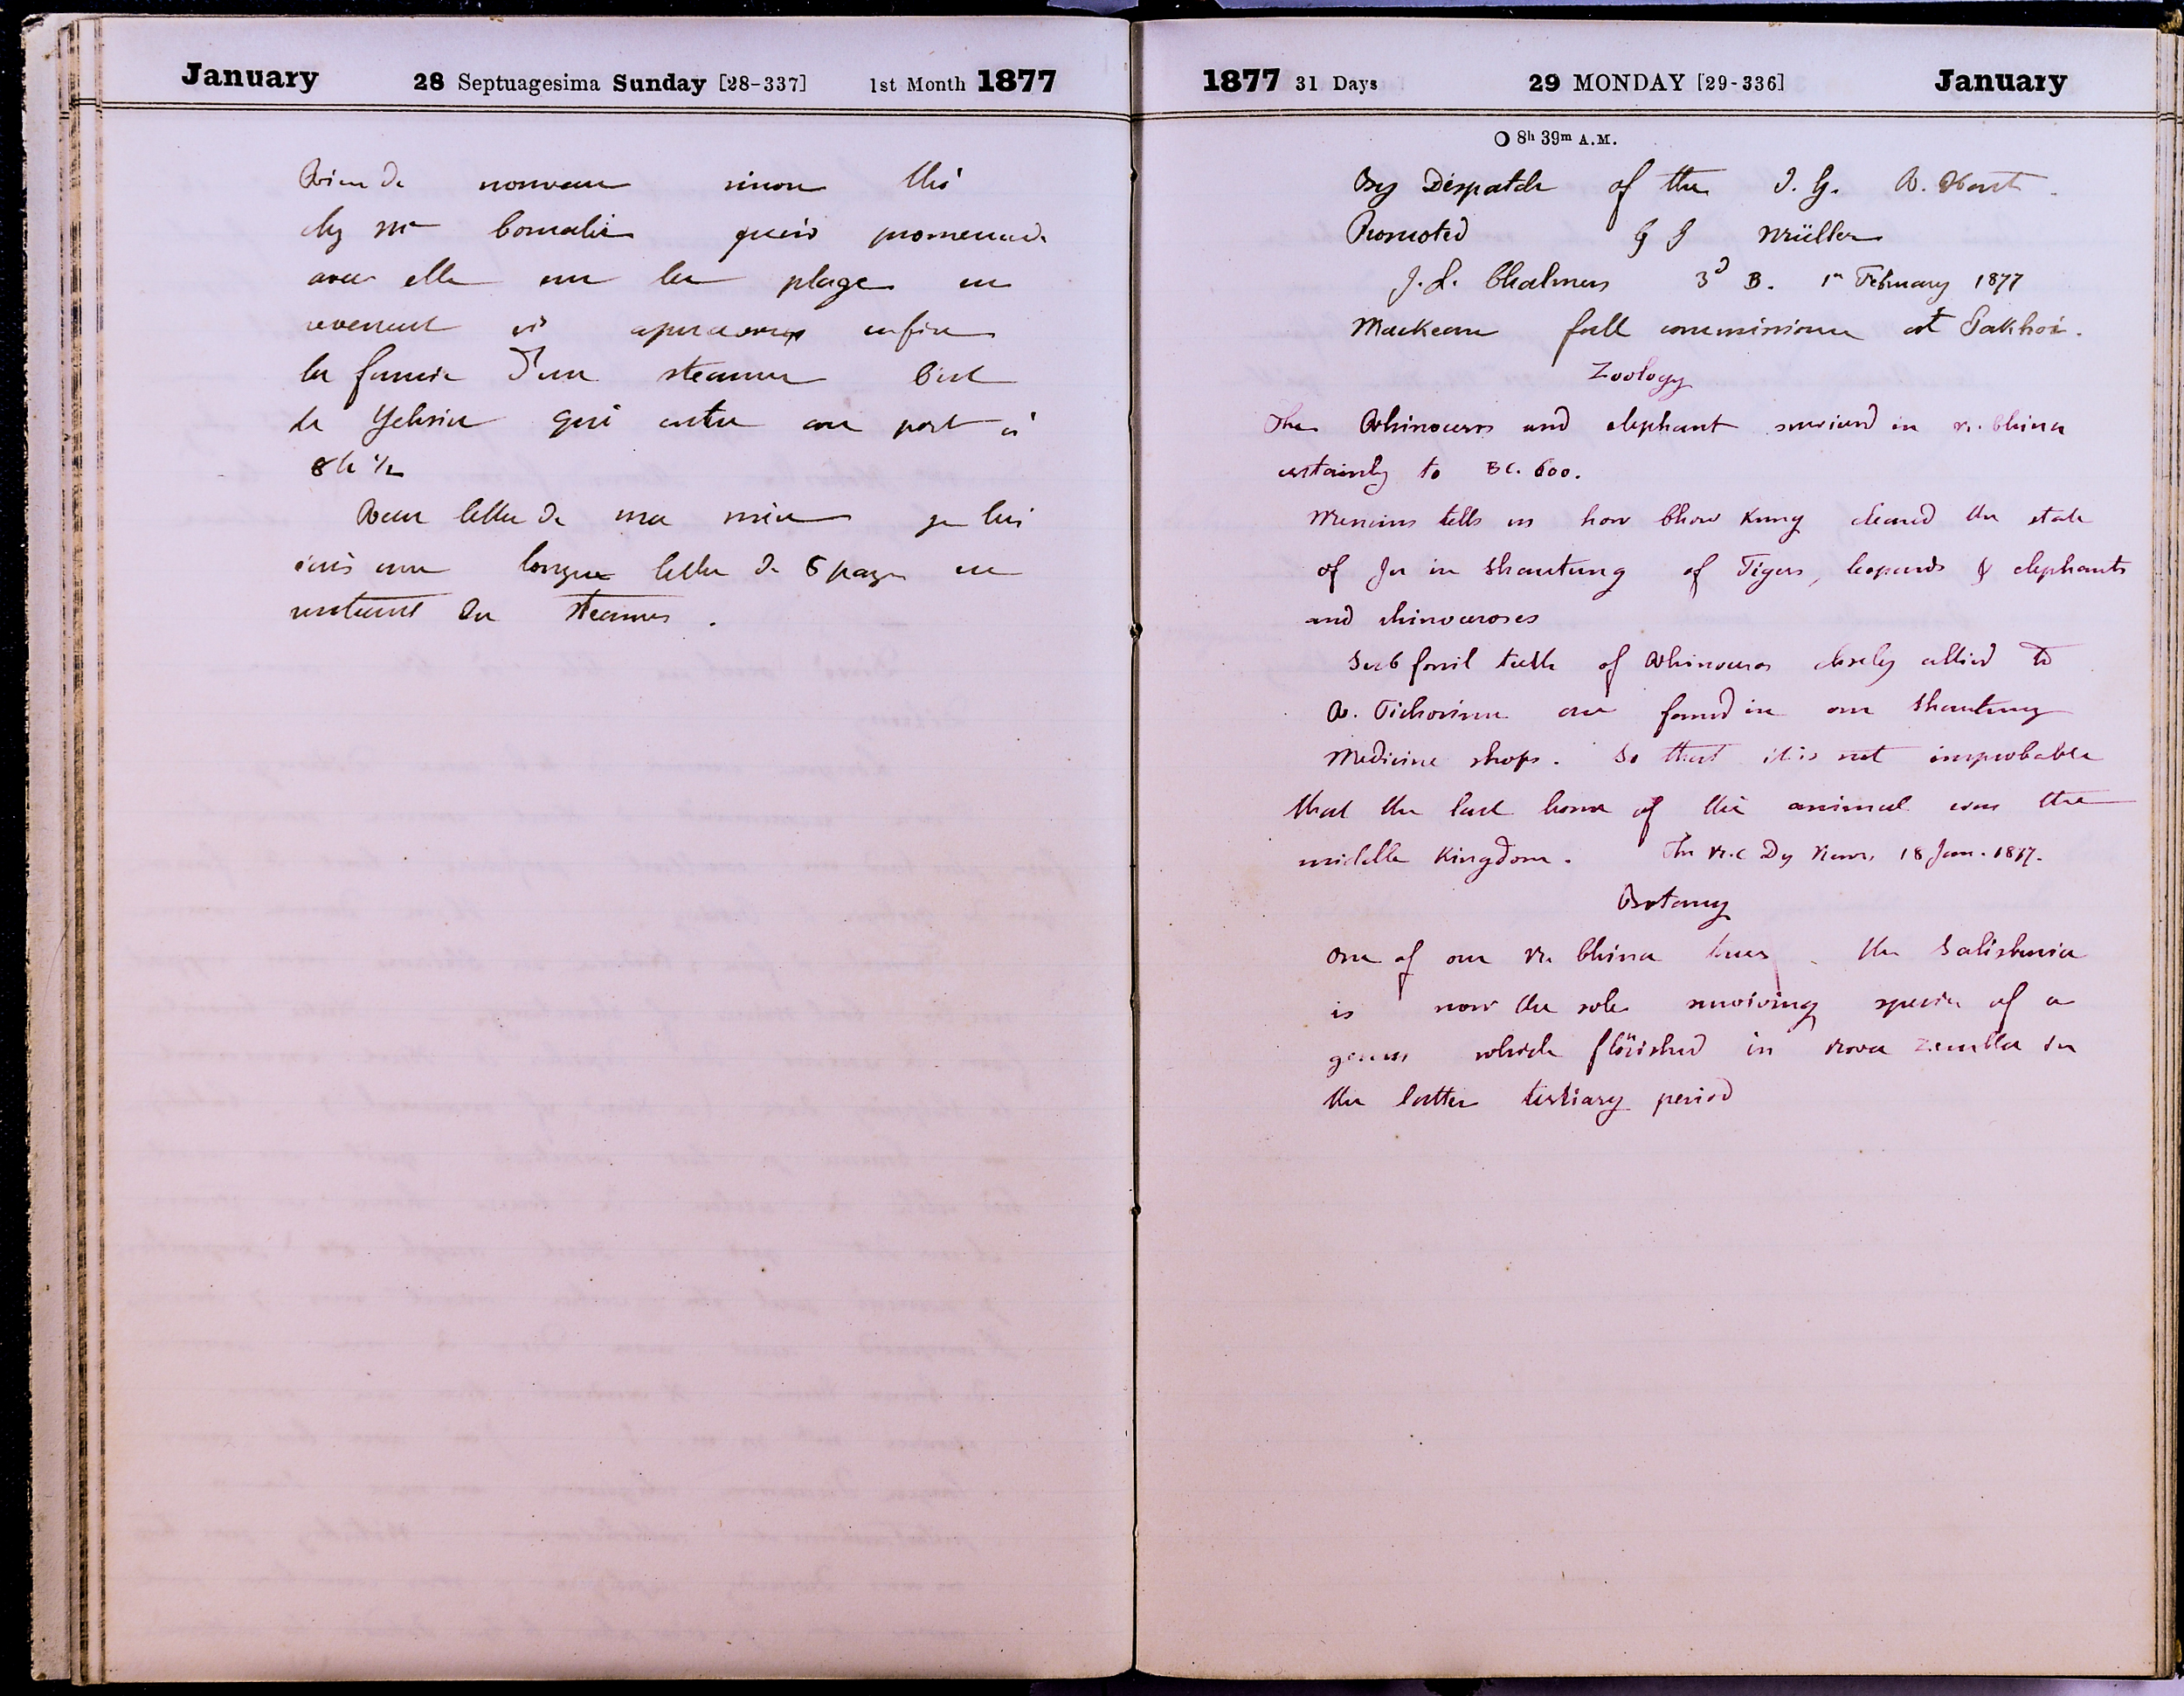 January 28 Septuagesima Sunday [28-337] 1st Month 1877
Rien de nouveau sinon thé
chez Mme Cornabé puis promenade
avec elle sur la plage en
revenant on apercevoir enfin
la fumée d'un steamer C'est
le Yehsin qui entre au port à
8h ½
Reçu lettre de ma mère je lui
écris une longue lettre de 6 pages en
rentrant du steamer.
1877 31 Days 29 MONDAY [29-336] January
8h 39m A.M.
By Dispatch of the I. G. R. Hart
Promoted G J Müller
J. L. Chalmers 3d B. 1r February 1877
Mackean full commissioner at Pakhoi.
Zoology
The Rhinoceros and elephant survived in N. China
certainly to BC. 600.
Mencius tells us how Chow Kung cleared the state
of Ju in Shantung of Tigers, leopards & elephants
and rhinoceroses
Sub fossil teeth of Rhinoceros closely allied to
R. Tichorinus are found in our Shantung
Medicine shops. So that it is not improbable
that the last home of this animal was the
middle Kingdom. The N.C Dy News, 18 Jan. 1877.
Botany
One of our Nn China trees, the Salisburia
is now the sole surviving species of a
genus which flourished in Nova Zembla in
the latter tertiary period